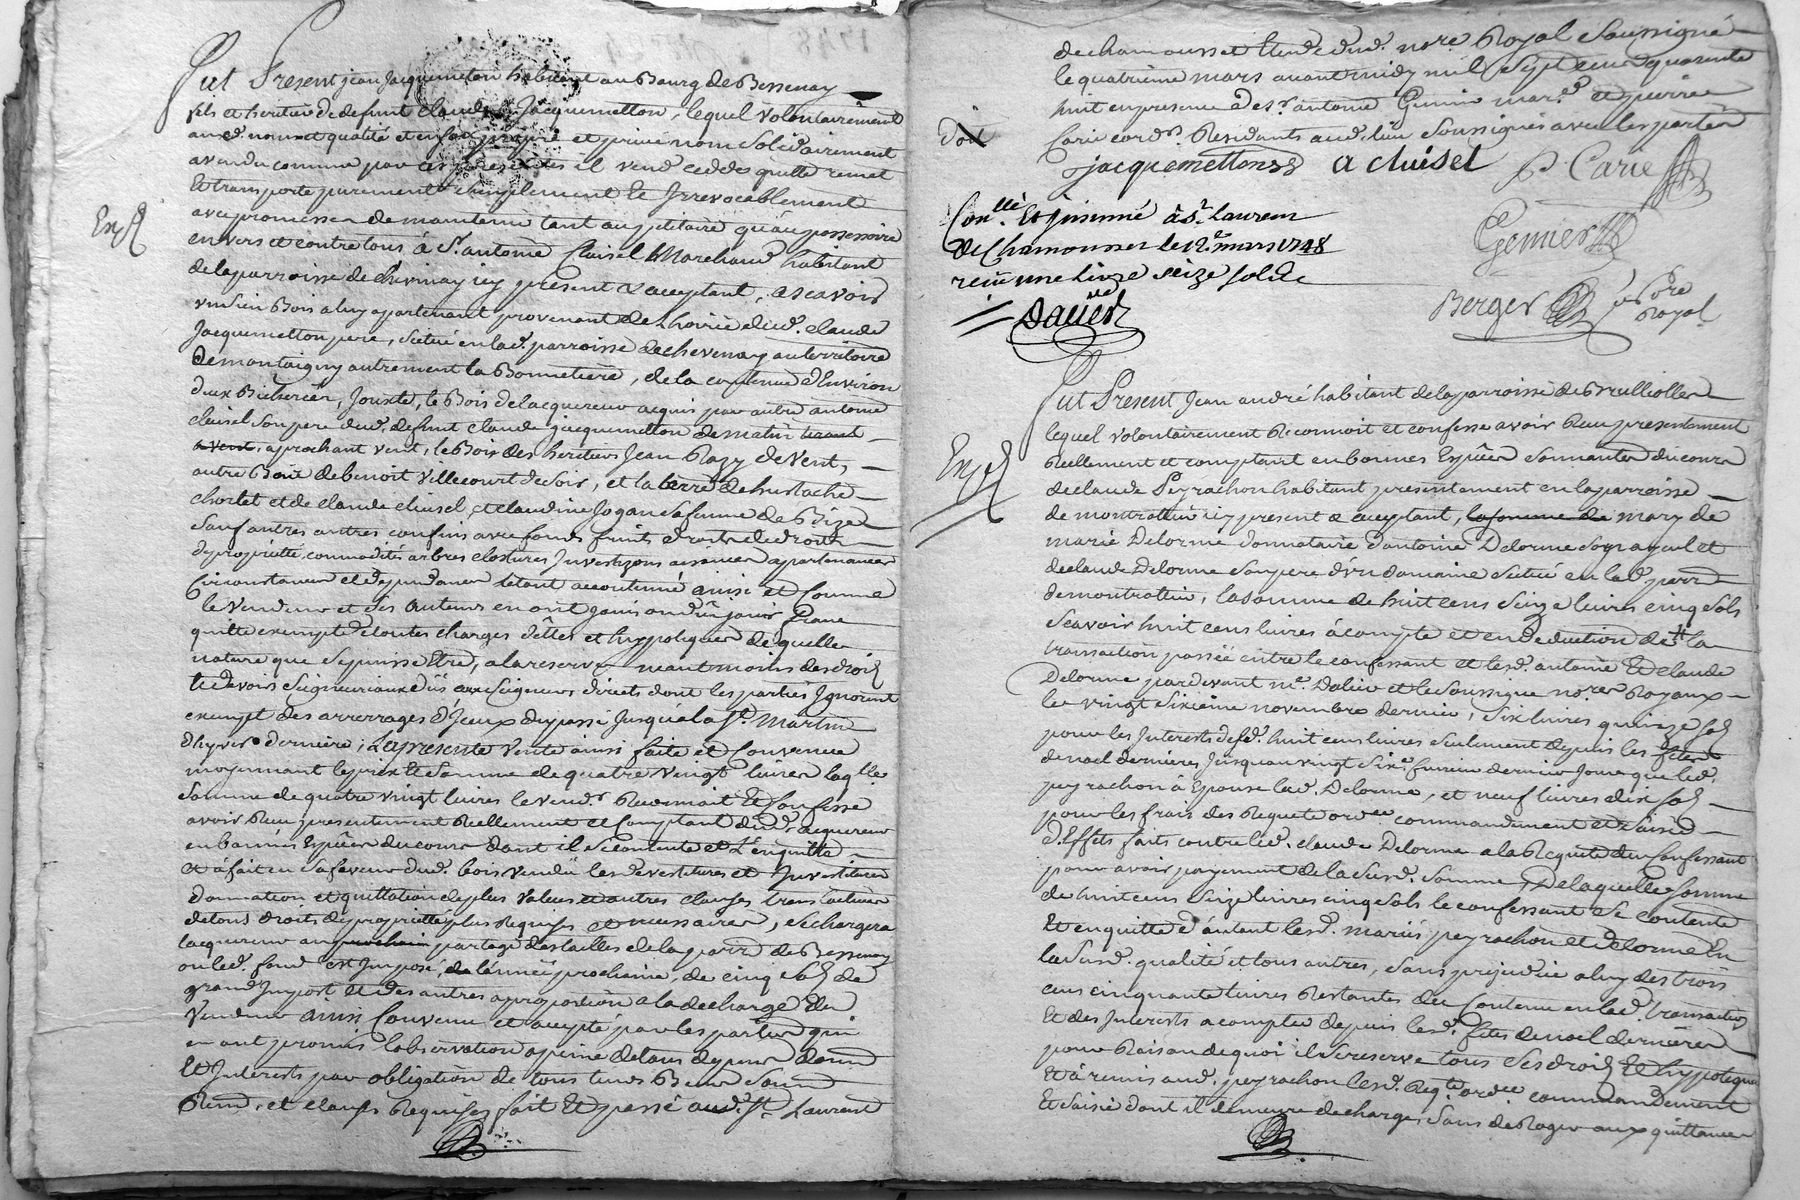 Fut Present jean Jacquemeton habitant au Bourg de Bessenay
fils et heritier de defunt Claude Jacquemetton, lequel volontairement
aud. nom et qualité et en son propre et prive nom solidairement
a vendu comme par ces presentes il vend cedde quitte remet
Et transporte purement simplement Et Irrevocablement
avec promesse de maintenir tant au petitoire qu'au possessoire
Exp.
envers et contre tous à Sr. antoine Cluisel Marchand habitant
de la parroisse de chevinay icy present & acceptant, a scavoir
un sien Bois a luy apartenant provenant de L'hoirie dud. claude
Jacquemetton pere, scitué en lad. parroisse de chevenay au territoire
de montaigny autrement la Bonnetiere, de la contenue d'Environ
deux Bicherées, Jouxte, le Bois de lacquereur acquis par autre antoine
cluisel son pere dud. defunt claude jacquemetton de matin
aprochant vent, le Bois des heritiers Jean Razy de vent,
autre Bois de benoit villecourt de soir, et la terre de hustache
chorlet et de claude cluisel, et claudine Jogan sa femme de Bize
sauf autres confins avec fonds fruits droits
de proprietté commodités arbres clostures Investizons aisances apartenances
Circonstances et dependances tetant accoutumé ainsi et comme
le vendeur et ses auteurs en ont jouis ou dû jouir franc
quitte exempt de toutes charges dettes et hyppoteques de quelle
nature que se puisse Etre, a la reserve neantmoins des droits
Et devoirs seigneuriaux dûs aux seigneurs directs dont les parties Ignorent
exempt des arrerages d'Jceux du passé Jusqu'a la St. Martin
d'hyver derniere; La presente vente ainsi faite et convenue
moyennant le prix Et somme de quatre vingt livres laqlle
somme de quatre vingt livres le vendr. Reconnoit Et Confesse
avoir Reçu presentement Reellement et Comptant dud. acquereur
en bonnes Espêces du cours dont il se contente et L'enquitte
et a fait en sa faveur dud. bois vendû les devestitures et Investitures
donnation et quittation de plus values et autres clauses translatives
de tous droits de proprietté plus Requises et necessaires, se chargera
lacquereur au prochain partage des tailles de la parr. de Bessenay
ou led. fond est Imposé, de l'année prochaine, de cinq sols de
grand Import Et des autres a proportion a la decharge du
vendeur ainsi Convenu et accepté par les parties qui
en ont promis l'observation a peine de tous depens dom.
Et Interests par obligation de tous leurs Biens soum.
Renon. et clauses Requises fait Et passé aud. St. Laurent
de chamousset Etude dud. nore. Royal soussigné
le quatrieme mars avant midy mil sept cens quarante
huit en presence de sr. antoine Genin mar. et pierre
Doit
Carie cord. Residants aud. lieu soussignés avec les parties
jacquemetton a cluisel P Carie
Conllé Et Insinué à St. Laurent
de Chamousset le 12e. mars 1748
reçu une livre seize sols
Dalier
Genier
Berger nore Royal
Fut Present Jean andré habitant de la parroisse de Brulliolles
Exp.
lequel volontairement Reconnoit et confesse avoir Reçu presentement
Reellement et comptant en bonnes Espêces sonnantes du cours
de claude Peyrachon habitant presentement en la parroisse
de montrottier icy present & acceptant, la somme de mary de
marie Delorme donnataire d'antoine Delorme son ayeul et
de claude Delorme son pere d'un domaine scitué en lad. parr.
de montrottier, la somme de huit cens seize livres cinq sols
Scavoir huit cens livres à compte et en deduction de la
transaction passée entre le confessant et lesd. antoine Et claude
Delorme pardevant me. Dalier et le soussigné nores. Royaux
le vingt sixieme novembre dernier, six livres quinze sols
pour les Interests desd. huit cens livres seulement depuis les fêtes
de noel dernieres Jusqu'au vingt sixe. fevrier dernier Jour que led.
peyrachon à Epousé lad. Delorme, et neuf livres dix sols
pour les frais des Requete ordce. commandement et saisie
d'Effets faits contre led. claude Delorme a la Requete du Confessant
pour avoir payement de la susd. somme, De laquelle somme
de huit cens seize livres cinq sols le confessant se contente
Et en quitte d'autant lesd. mariés peyrachon et delorme En
la susd. qualité et tous autres, sans prejudice a luy des trois
cens cinquante livres Restantes du Contenu en lad. transaction
Et des Interests a compter depuis lesd. fêtes de noel dernieres
pour Raison de quoi il se reserve tous ses droits Et hypoteques
Et à remis aud. peyrachon lesd. Reqte. ordce. commandement
Et saisie dont il demeure decharge, sans deRoger aux quittances